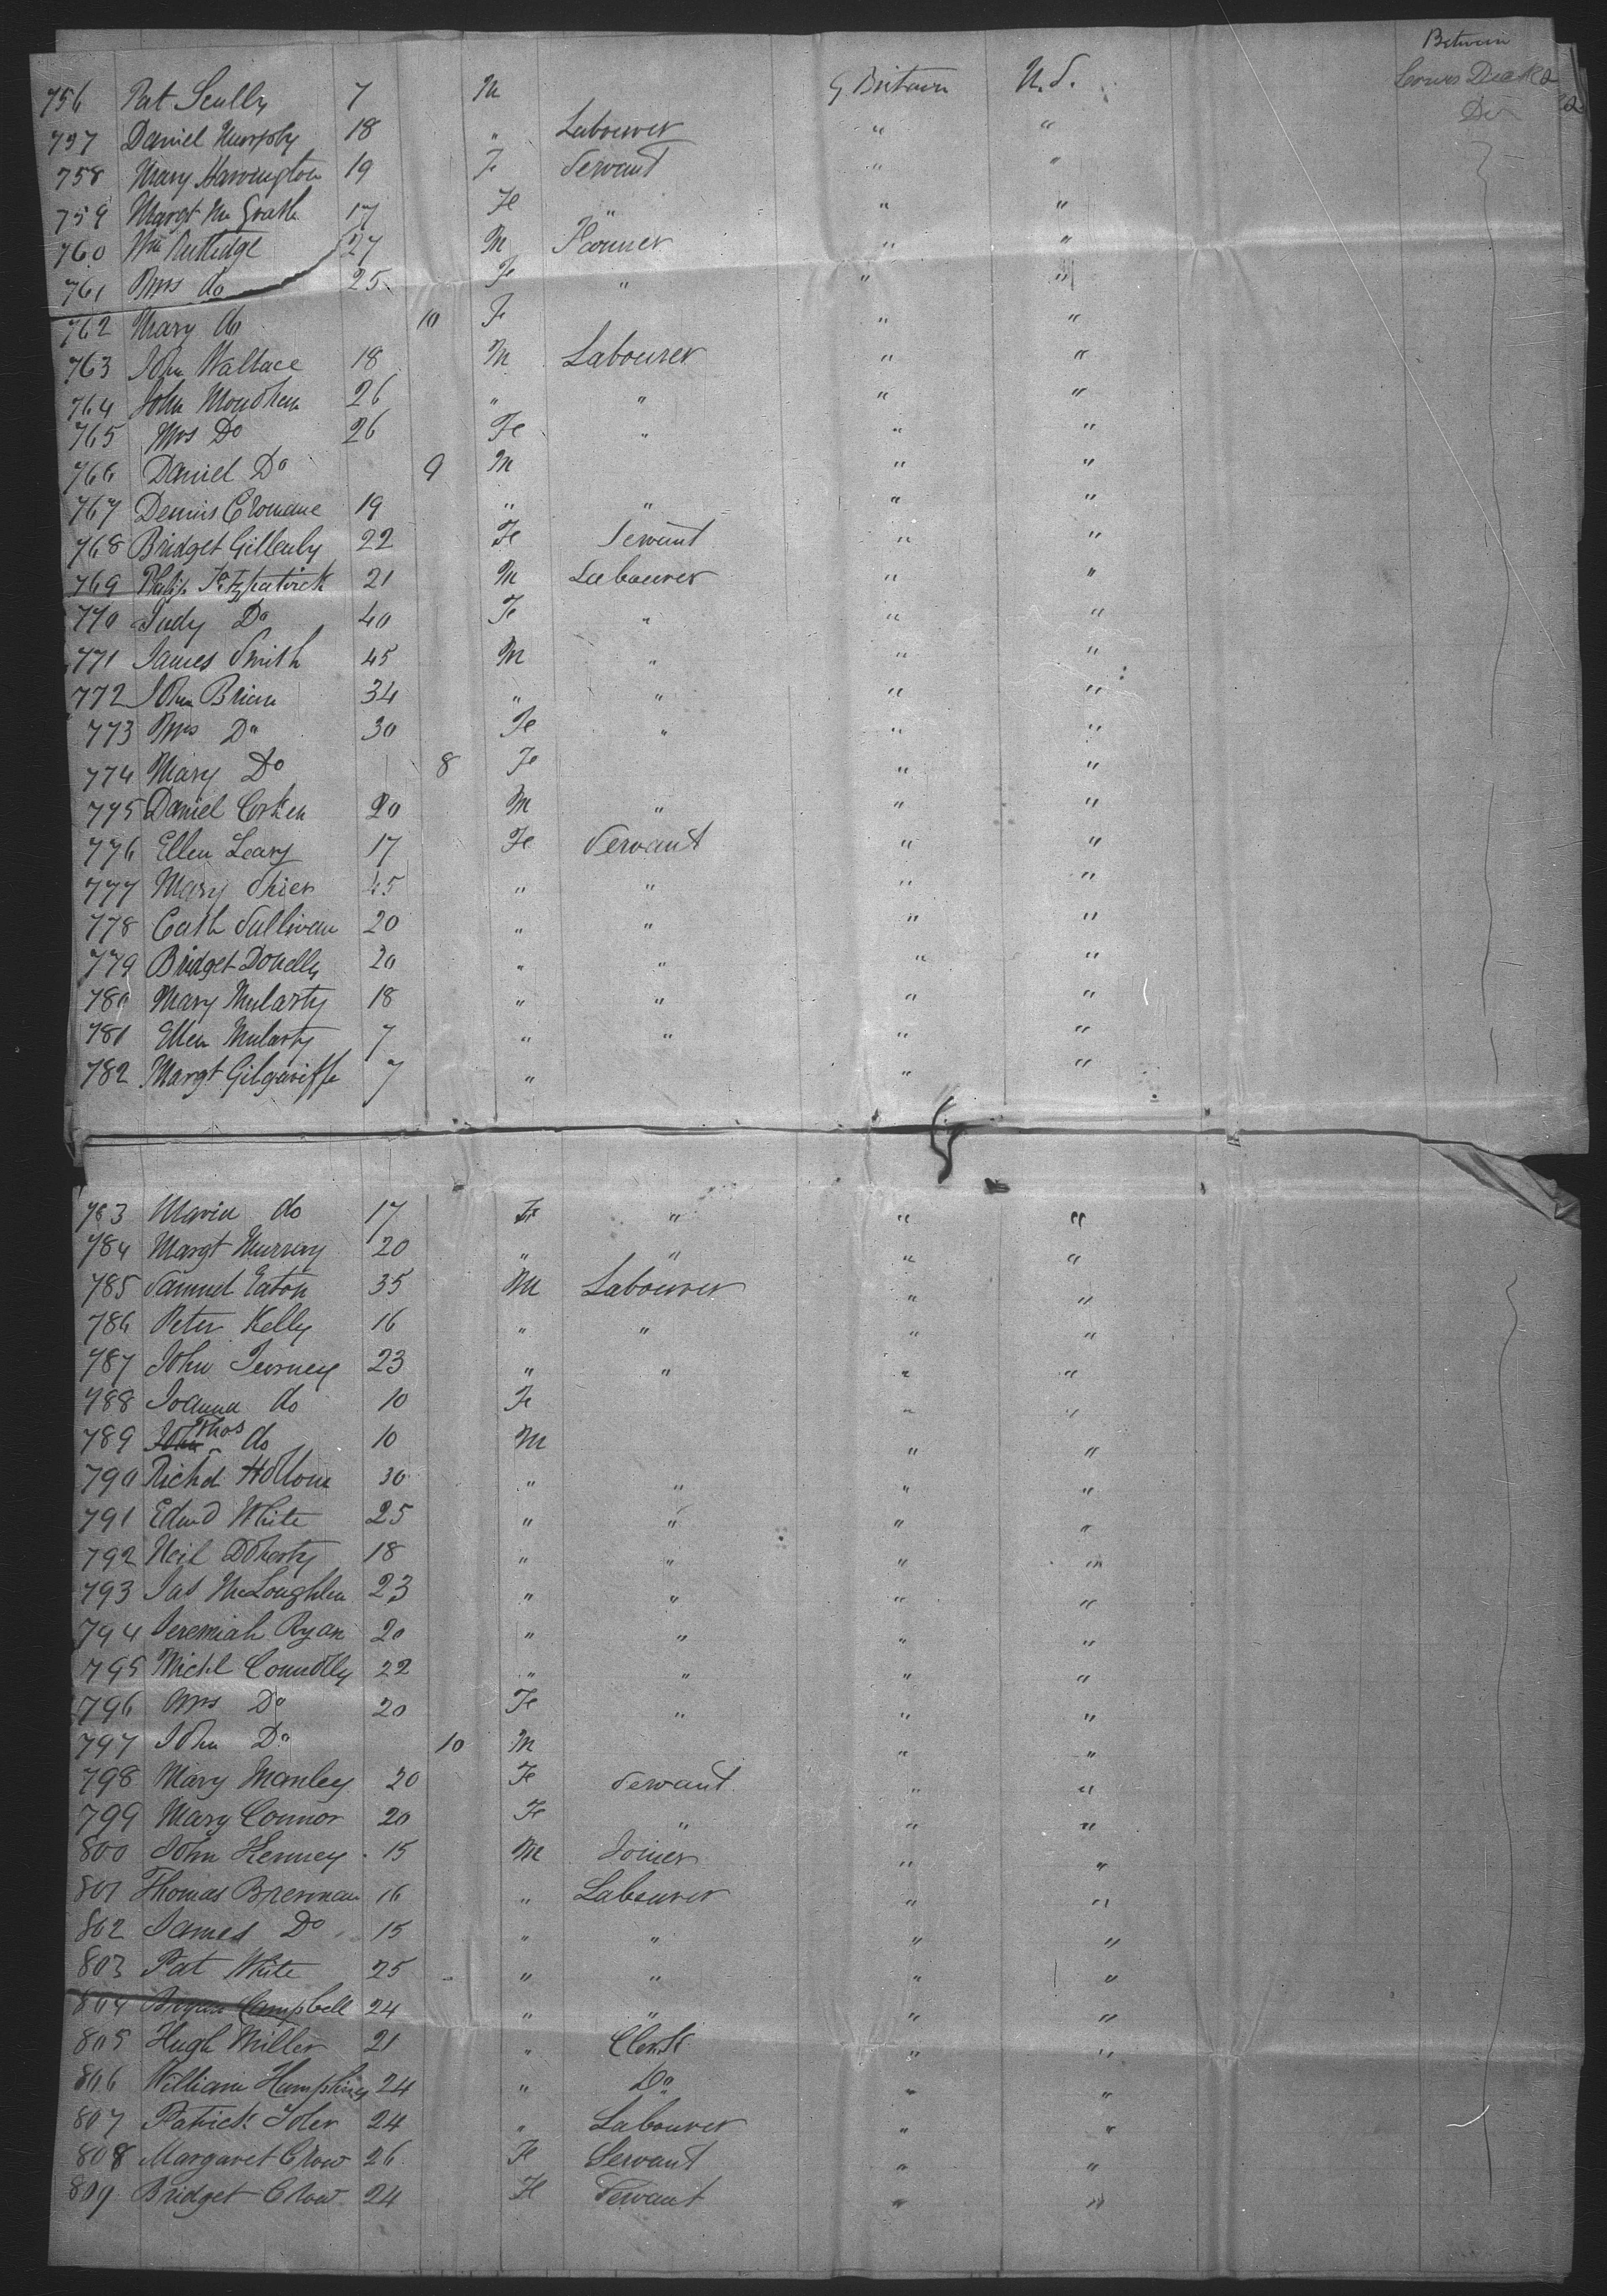 Between
Lower Deck
Do
756 Pat Scully 7 M G Britain U.S.
757 Daniel Murphy 18 " Labourer " "
758 Mary Harrington 19 F Servant " "
759 Margt Mc Grath 17 Fe " " "
760 Wm Rutledge 27 M Farmer " "
761 Mrs do 25 Fe " " "
762 Mary do 10 F " "
763 John Wallace 18 M Labourer " "
764 John 26 " " " "
765 Mrs Do 26 Fe " " "
766 Daniel Do 9 M " "
767 Dennis 19 " " " "
768 Bridget 22 Fe Servant " "
769 Philip Fitzpatrick 21 M Labourer " "
770 Judy Do 40 Fe " " "
771 James Smith 45 M " " "
772 John Brien 34 " " " "
773 Mrs Do 30 Fe " " "
774 Mary Do 8 Fe " "
775 Daniel Corken 20 M " " "
776 Ellen Leary 17 Fe Servant " "
777 Mary Shier 45 " " " "
778 Cath Sullivan 20 " " " "
779 Bridget Donelly 20 " " " "
780 Mary Mularty 18 " " " "
781 Ellen Mularty 7 " " " "
782 Margt Gilgariffe 7 " " "
783 Maria do 17 Fe " " "
784 Margt Murray 20 " " " "
785 Samuel Eaton 35 M Labourer " "
786 Peter Kelly 16 " " " "
787 John Teorney 23 " " " "
788 Joanna do 10 Fe " "
789 John Thos do 10 M " "
790 Richd 30 " " " "
791 Edwd White 25 " " " "
792 Neil Doherty 18 " " " "
793 Jas McLoughlin 23 " " " "
794 Jeremiah Ryan 20 " " " "
795 Michl Connolly 22 " " " "
796 Mrs Do 20 Fe " " "
797 John Do 10 M " "
798 Mary Manley 20 Fe Servant " "
799 Mary Connor 20 Fe " " "
800 John Kenney 15 M Joiner " "
801 Thomas Brennan 16 " Labourer " "
802 James Do 15 " " " "
803 Pat White 25 " " " "
804 Bryan Campbell 24 " " " "
805 Hugh Miller 21 " Clerk " "
806 William Humphrey 24 " Do " "
807 Patrick Toler 24 " Labourer " "
808 Margaret Crow 26 Fe Servant " "
809 Bridget Crow 24 Fe Servant " "